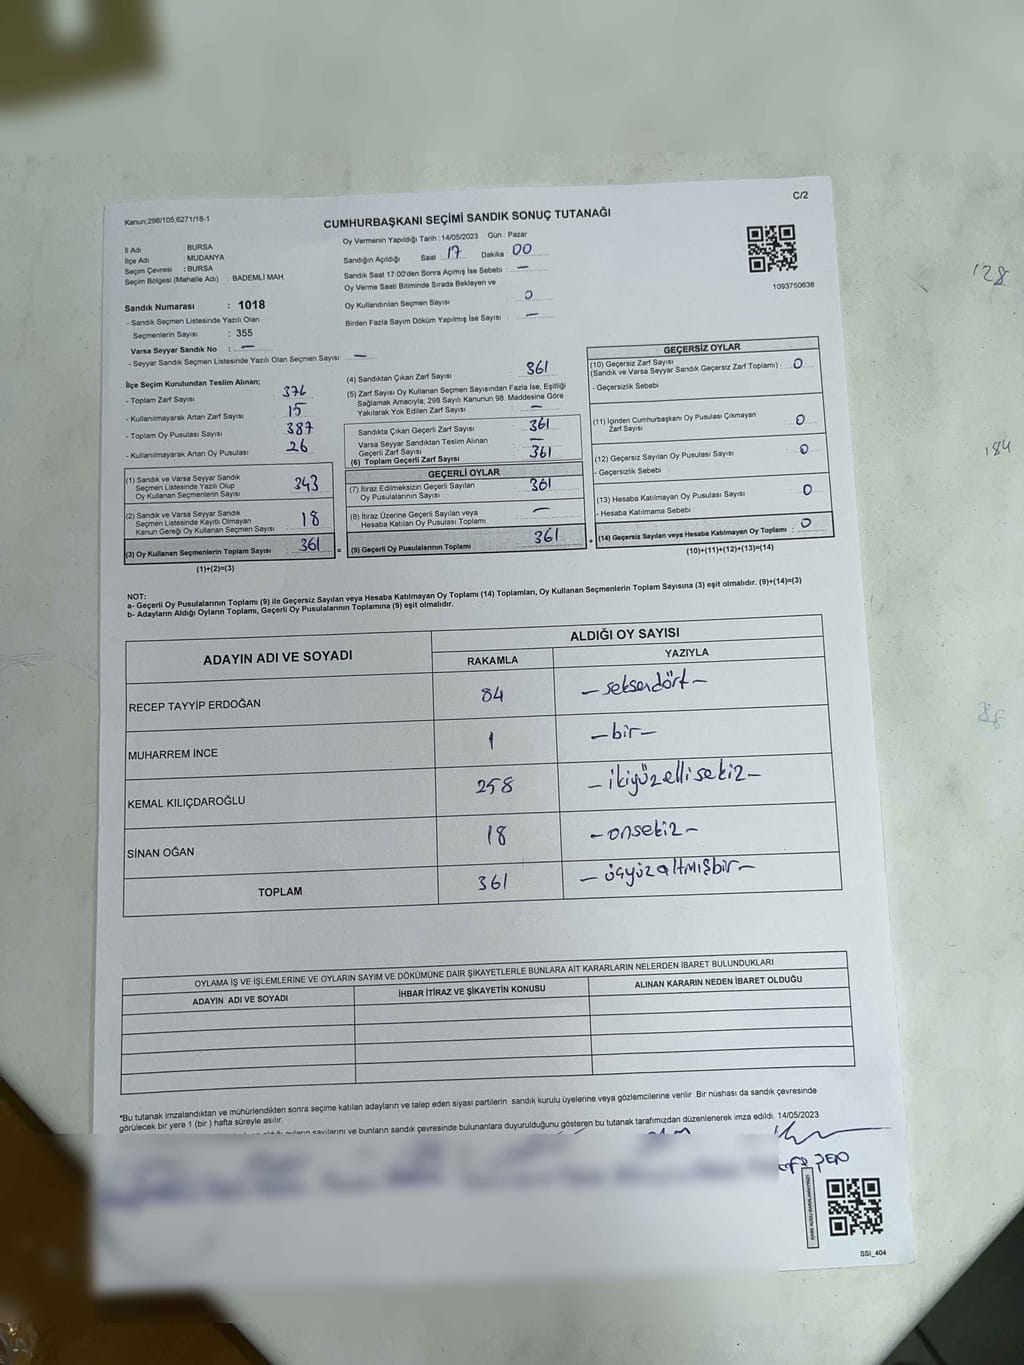 C/2
Kanun:298/105,6271/18-1
CUMHURBAŞKANI SEÇİMİ SANDIK SONUÇ TUTANAĞI
İl Adı : BURSA
İlçe Adı : MUDANYA
Seçim Çevresi : BURSA
Seçim Bölgesi (Mahalle Adı) : BADEMLİ MAH.
Sandık Numarası : 1018
- Sandık Seçmen Listesinde Yazılı Olan
Seçmenlerin Sayısı : 355
Varsa Seyyar Sandık No : —
- Seyyar Sandık Seçmen Listesinde Yazılı Olan Seçmen Sayısı : —
Oy Vermenin Yapıldığı Tarih : 14/05/2023 Gün : Pazar
Sandığın Açıldığı Saat 17 Dakika 00
Sandık Saat 17:00'den Sonra Açımış İse Sebebi : —
Oy Verme Saati Bitiminde Sırada Bekleyen ve
Oy Kullandırılan Seçmen Sayısı : 0
Birden Fazla Sayım Döküm Yapılmış İse Sayısı : —
1093750638
İlçe Seçim Kurulundan Teslim Alınan;
- Toplam Zarf Sayısı : 376
- Kullanılmayarak Artan Zarf Sayısı : 15
- Toplam Oy Pusulası Sayısı : 387
- Kullanılmayarak Artan Oy Pusulası : 26
(1) Sandık ve Varsa Seyyar Sandık
Seçmen Listesinde Yazılı Olup
Oy Kullanan Seçmenlerin Sayısı 343
(2) Sandık ve Varsa Seyyar Sandık
Seçmen Listesinde Kayıtlı Olmayan
Kanun Gereği Oy Kullanan Seçmen Sayısı 18
(3) Oy Kullanan Seçmenlerin Toplam Sayısı 361 =
(1)+(2)=(3)
(4) Sandıktan Çıkan Zarf Sayısı : 361
(5) Zarf Sayısı Oy Kullanan Seçmen Sayısından Fazla İse, Eşitliği
Sağlamak Amacıyla, 298 Sayılı Kanunun 98. Maddesine Göre
Yakılarak Yok Edilen Zarf Sayısı : —
Sandıkta Çıkan Geçerli Zarf Sayısı : 361
Varsa Seyyar Sandıktan Teslim Alınan
Geçerli Zarf Sayısı : —
(6) Toplam Geçerli Zarf Sayısı : 361
GEÇERLİ OYLAR
(7) İtiraz Edilmeksizin Geçerli Sayılan
Oy Pusulalarının Sayısı : 361
(8) İtiraz Üzerine Geçerli Sayılan veya
Hesaba Katılan Oy Pusulası Toplamı : —
(9) Geçerli Oy Pusulalarının Toplamı : 361 +
GEÇERSİZ OYLAR
(10) Geçersiz Zarf Sayısı
(Sandık ve Varsa Seyyar Sandık Geçersiz Zarf Toplamı) : 0
- Geçersizlik Sebebi
(11) İçinden Cumhurbaşkanı Oy Pusulası Çıkmayan
Zarf Sayısı : 0
(12) Geçersiz Sayılan Oy Pusulası Sayısı : 0
- Geçersizlik Sebebi :
(13) Hesaba Katılmayan Oy Pusulası Sayısı : 0
- Hesaba Katılmama Sebebi :
(14) Geçersiz Sayılan veya Hesaba Katılmayan Oy Toplamı : 0
(10)+(11)+(12)+(13)=(14)
NOT:
a- Geçerli Oy Pusulalarının Toplamı (9) ile Geçersiz Sayılan veya Hesaba Katılmayan Oy Toplamı (14) Toplamları, Oy Kullanan Seçmenlerin Toplam Sayısına (3) eşit olmalıdır. (9)+(14)=(3)
b- Adayların Aldığı Oyların Toplamı, Geçerli Oy Pusulalarının Toplamına (9) eşit olmalıdır.
ADAYIN ADI VE SOYADI ALDIĞI OY SAYISI
RAKAMLA YAZIYLA
RECEP TAYYİP ERDOĞAN 84 — seksendört —
MUHARREM İNCE 1 — bir —
KEMAL KILIÇDAROĞLU 258 — ikiyüzellisekiz —
SİNAN OĞAN 18 — onsekiz —
TOPLAM 361 — üçyüzaltmışbir —
OYLAMA İŞ VE İŞLEMLERİNE VE OYLARIN SAYIM VE DÖKÜMÜNE DAİR ŞİKAYETLERLE BUNLARA AİT KARARLARIN NELERDEN İBARET BULUNDUKLARI
ADAYIN ADI VE SOYADI İHBAR İTİRAZ VE ŞİKAYETİN KONUSU ALINAN KARARIN NEDEN İBARET OLDUĞU
*Bu tutanak imzalandıktan ve mühürlendikten sonra seçime katılan adayların ve talep eden siyasi partilerin sandık kurulu üyelerine veya gözlemcilerine verilir. Bir nüshası da sandık çevresinde
görülecek bir yere 1 (bir) hafta süreyle asılır.
sayılarını ve bunların sandık çevresinde bulunanlara duyurulduğunu gösteren bu tutanak tarafımızdan düzenlenerek imza edildi. 14/05/2023
SSI_404
128
184